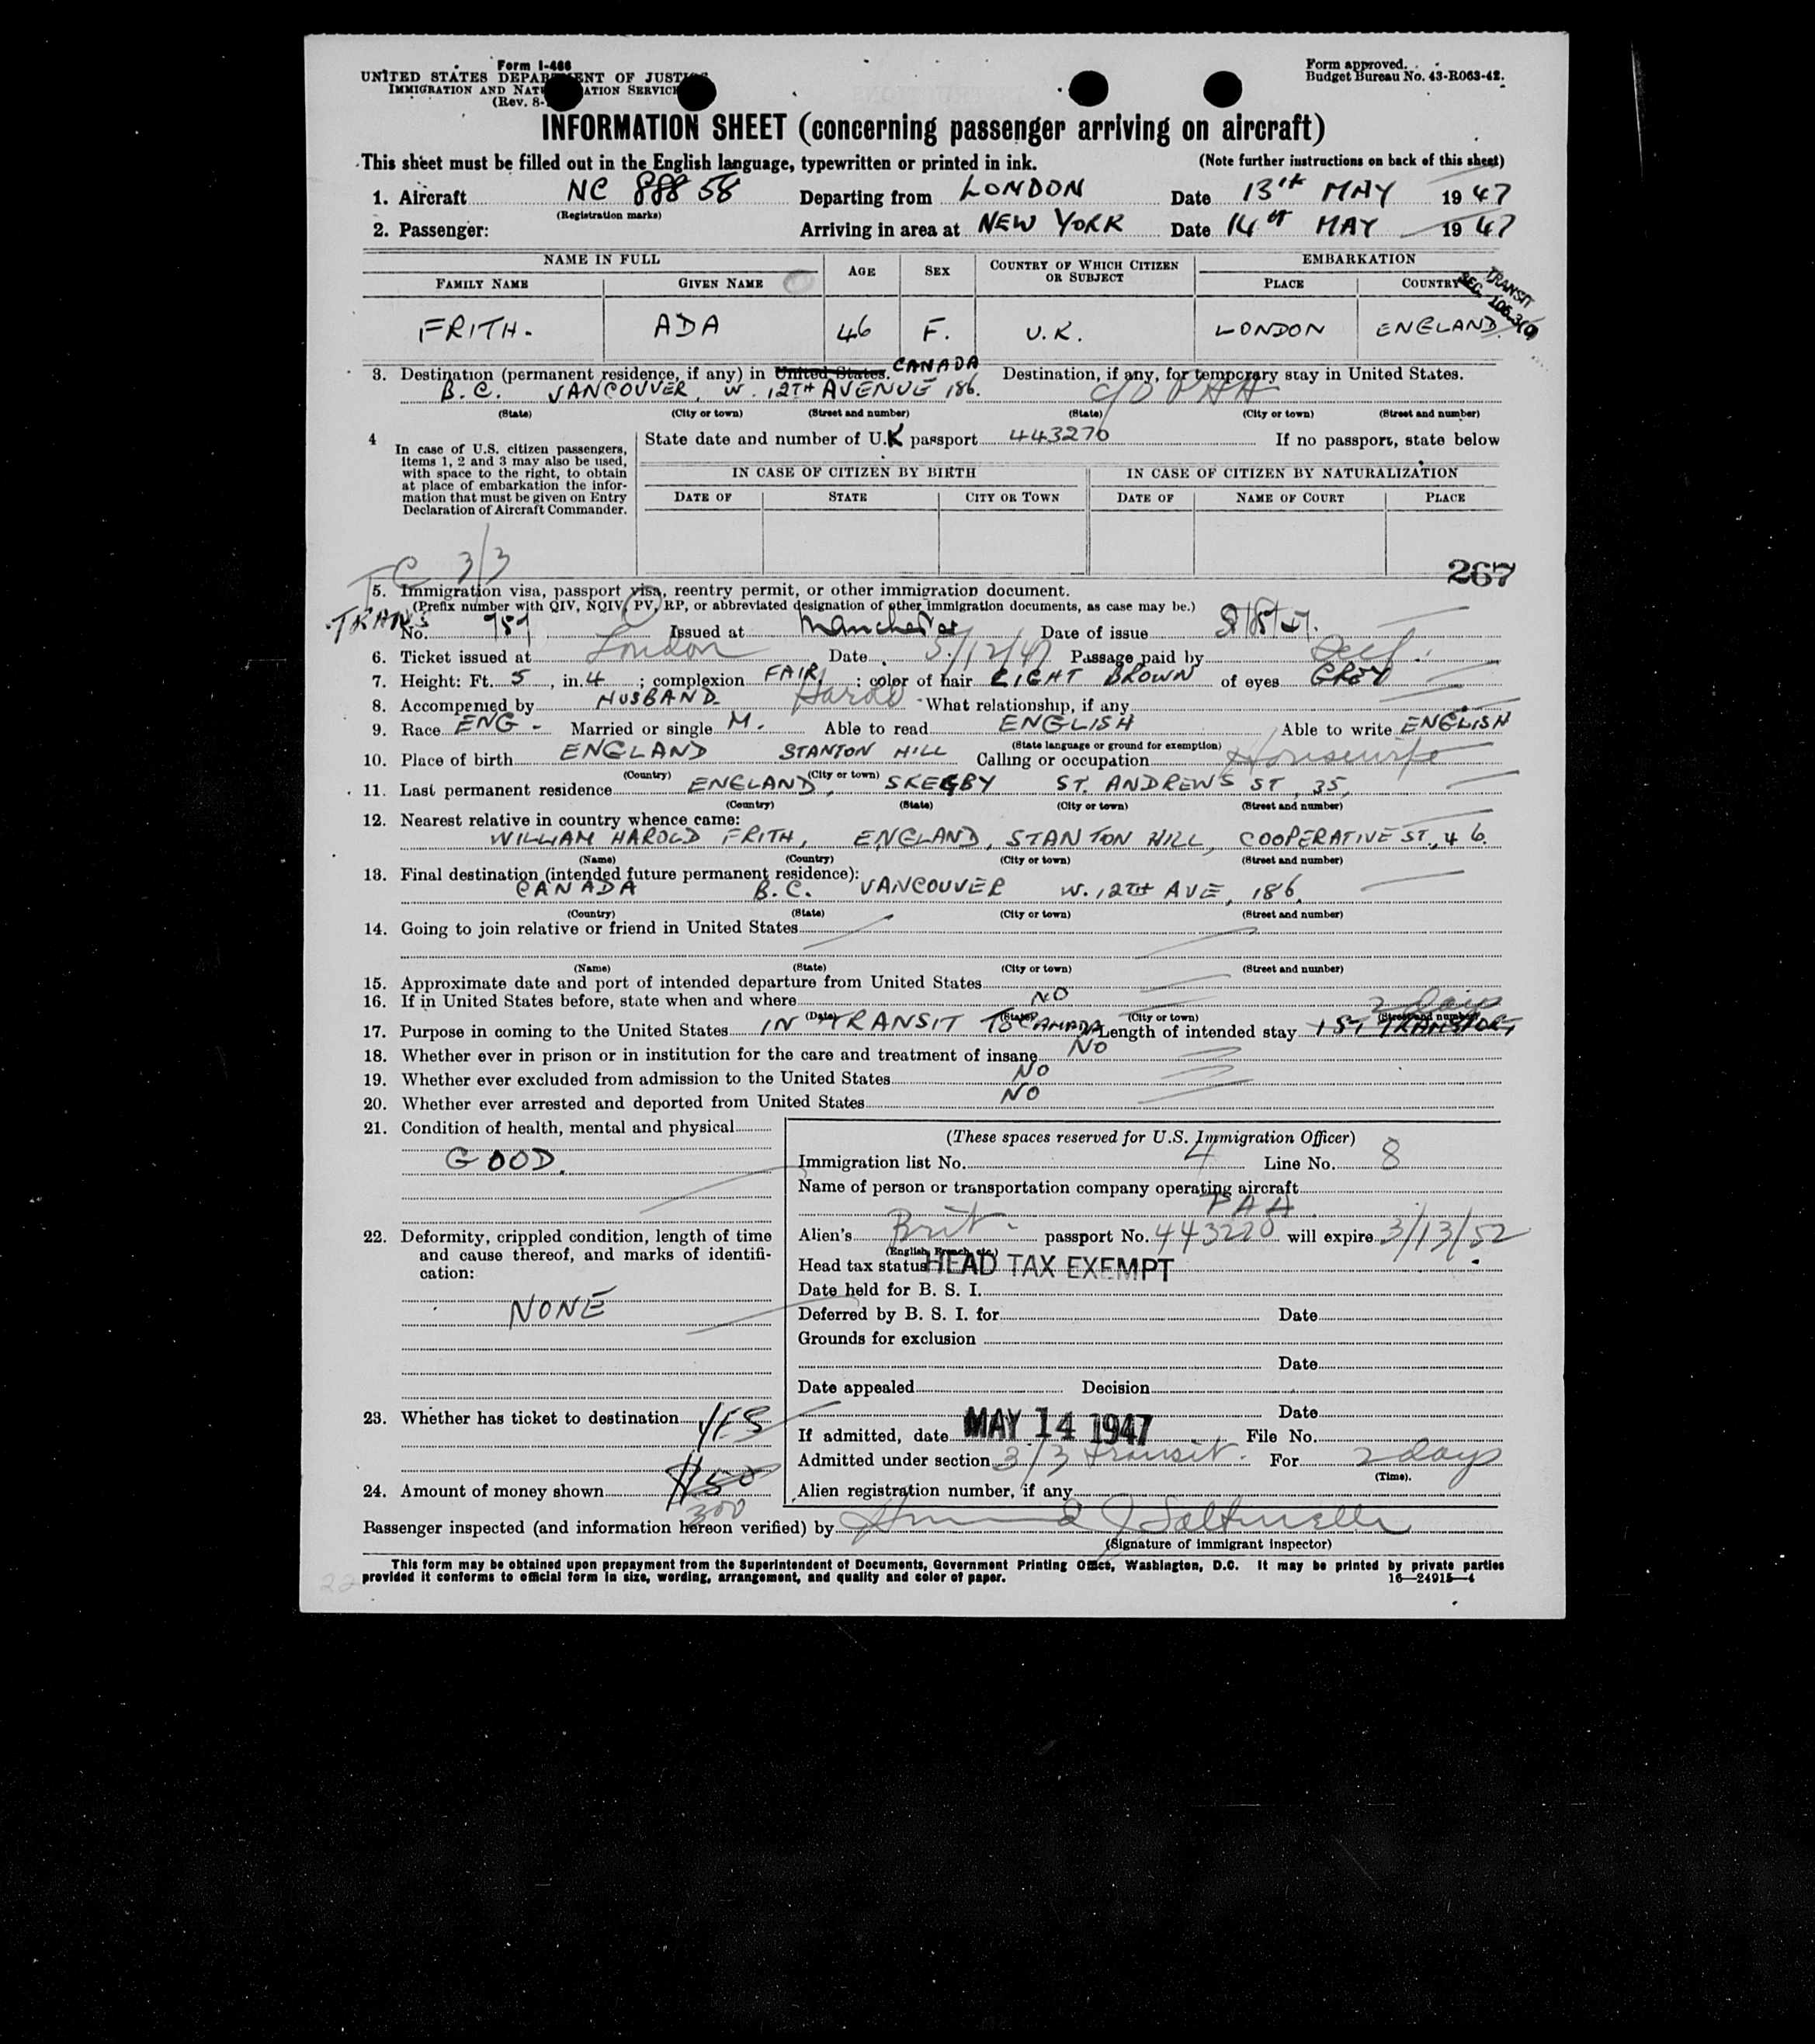 Form I-466
UNITED STATES DEPARTMENT OF JUSTICE
IMMIGRATION AND NATURALIZATION SERVICE
(Rev. 8-
Form approved.
Budget Bureau No. 43-R063-42.
INFORMATION SHEET (concerning passenger arriving on aircraft)
This sheet must be filled out in the English language, typewritten or printed in ink. (Note further instructions on back of this sheet)
1. Aircraft NC 88858 Departing from LONDON Date 13th MAY 1947
(Registration marks)
2. Passenger: Arriving in area at NEW YORK Date 14th MAY 1947
NAME IN FULL AGE SEX COUNTRY OF WHICH CITIZEN OR SUBJECT EMBARKATION
FAMILY NAME GIVEN NAME PLACE COUNTRY
TRANSIT
SEC. 106.3(a)
FRITH. ADA 46 F. U.K. LONDON ENGLAND
3. Destination (permanent residence, if any) in United States. CANADA Destination, if any, for temporary stay in United States.
B.C. VANCOUVER, W. 12TH AVENUE 186. c/o PAA
(State) (City or town) (Street and number) (State) (City or town) (Street and number)
4 In case of U.S. citizen passengers, items 1, 2 and 3 may also be used, with space to the right, to obtain at place of embarkation the information that must be given on Entry Declaration of Aircraft Commander.
State date and number of U.K passport 443270 If no passport, state below
IN CASE OF CITIZEN BY BIRTH IN CASE OF CITIZEN BY NATURALIZATION
DATE OF STATE CITY OR TOWN DATE OF NAME OF COURT PLACE
TC 3/3
267
5. Immigration visa, passport visa, reentry permit, or other immigration document.
(Prefix number with QIV, NQIV, PV, RP, or abbreviated designation of other immigration documents, as case may be.)
TRANS
No. 959 Issued at Manchester Date of issue 8/5/47.
6. Ticket issued at London Date 5/12/47 Passage paid by Self.
7. Height: Ft. 5, in. 4; complexion FAIR; color of hair LIGHT BROWN of eyes GREY
8. Accompanied by HUSBAND. Harold What relationship, if any
9. Race ENG. Married or single M. Able to read ENGLISH Able to write ENGLISH
(State language or ground for exemption)
10. Place of birth ENGLAND STANTON HILL Calling or occupation Housewife
(Country) (City or town)
11. Last permanent residence ENGLAND, SKEGBY ST. ANDREWS ST, 35,
(Country) (State) (City or town) (Street and number)
12. Nearest relative in country whence came:
WILLIAM HAROLD FRITH, ENGLAND, STANTON HILL, COOPERATIVE ST., 46.
(Name) (Country) (City or town) (Street and number)
13. Final destination (intended future permanent residence):
CANADA B.C. VANCOUVER W. 12TH AVE, 186.
(Country) (State) (City or town) (Street and number)
14. Going to join relative or friend in United States
(Name) (State) (City or town) (Street and number)
15. Approximate date and port of intended departure from United States
16. If in United States before, state when and where NO
(Date) (State) (City or town) (Street and number)
2 days
17. Purpose in coming to the United States IN TRANSIT TO CANADA Length of intended stay 1ST TRANSPORT
18. Whether ever in prison or in institution for the care and treatment of insane NO
19. Whether ever excluded from admission to the United States NO
20. Whether ever arrested and deported from United States NO
21. Condition of health, mental and physical
GOOD.
22. Deformity, crippled condition, length of time and cause thereof, and marks of identification:
NONE
23. Whether has ticket to destination YES
24. Amount of money shown $150
300
(These spaces reserved for U.S. Immigration Officer)
Immigration list No. 4 Line No. 8
Name of person or transportation company operating aircraft
PAA
Alien's Brit. passport No. 443270 will expire 3/13/52
(English, French, etc.)
Head tax status HEAD TAX EXEMPT
Date held for B. S. I.
Deferred by B. S. I. for Date
Grounds for exclusion
Date
Date appealed Decision
Date
If admitted, date MAY 14 1947 File No.
Admitted under section 3/3 transit. For 2 days
(Time).
Alien registration number, if any
Passenger inspected (and information hereon verified) by
(Signature of immigrant inspector)
This form may be obtained upon prepayment from the Superintendent of Documents, Government Printing Office, Washington, D.C. It may be printed by private parties
provided it conforms to official form in size, wording, arrangement, and quality and color of paper. 16—24915-4